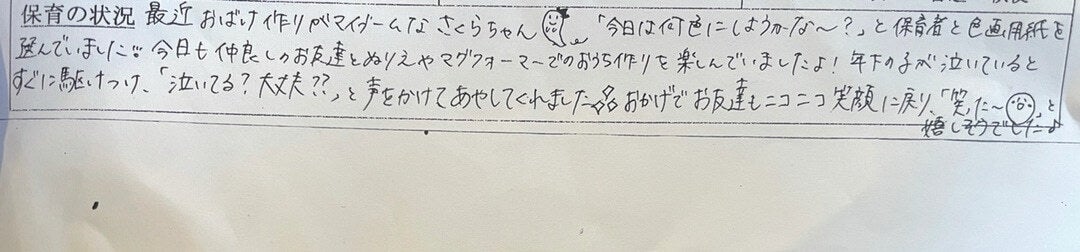 保育の状況 最近 おばけ作りがマイブームな さくらちゃん 「今日は何色にしようかな〜?」と保育者と色画用紙を
選んでいました!! 今日も仲良しのお友達とぬりえやマグフォーマーでのおうち作りを楽しんでいましたよ! 年下の子が泣いていると
すぐに駆けつけ、「泣いてる?大丈夫??」と声をかけてあやしてくれました☆☆ おかげでお友達もニコニコ笑顔に戻り、「笑った〜」と
嬉しそうでした♪